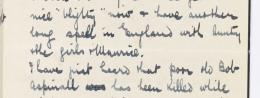 nice "Blighty" now & have another
long spell in England with Aunty
the girls & Maurice.
I have just heard that poor old Bob
Aspinall has been killed while